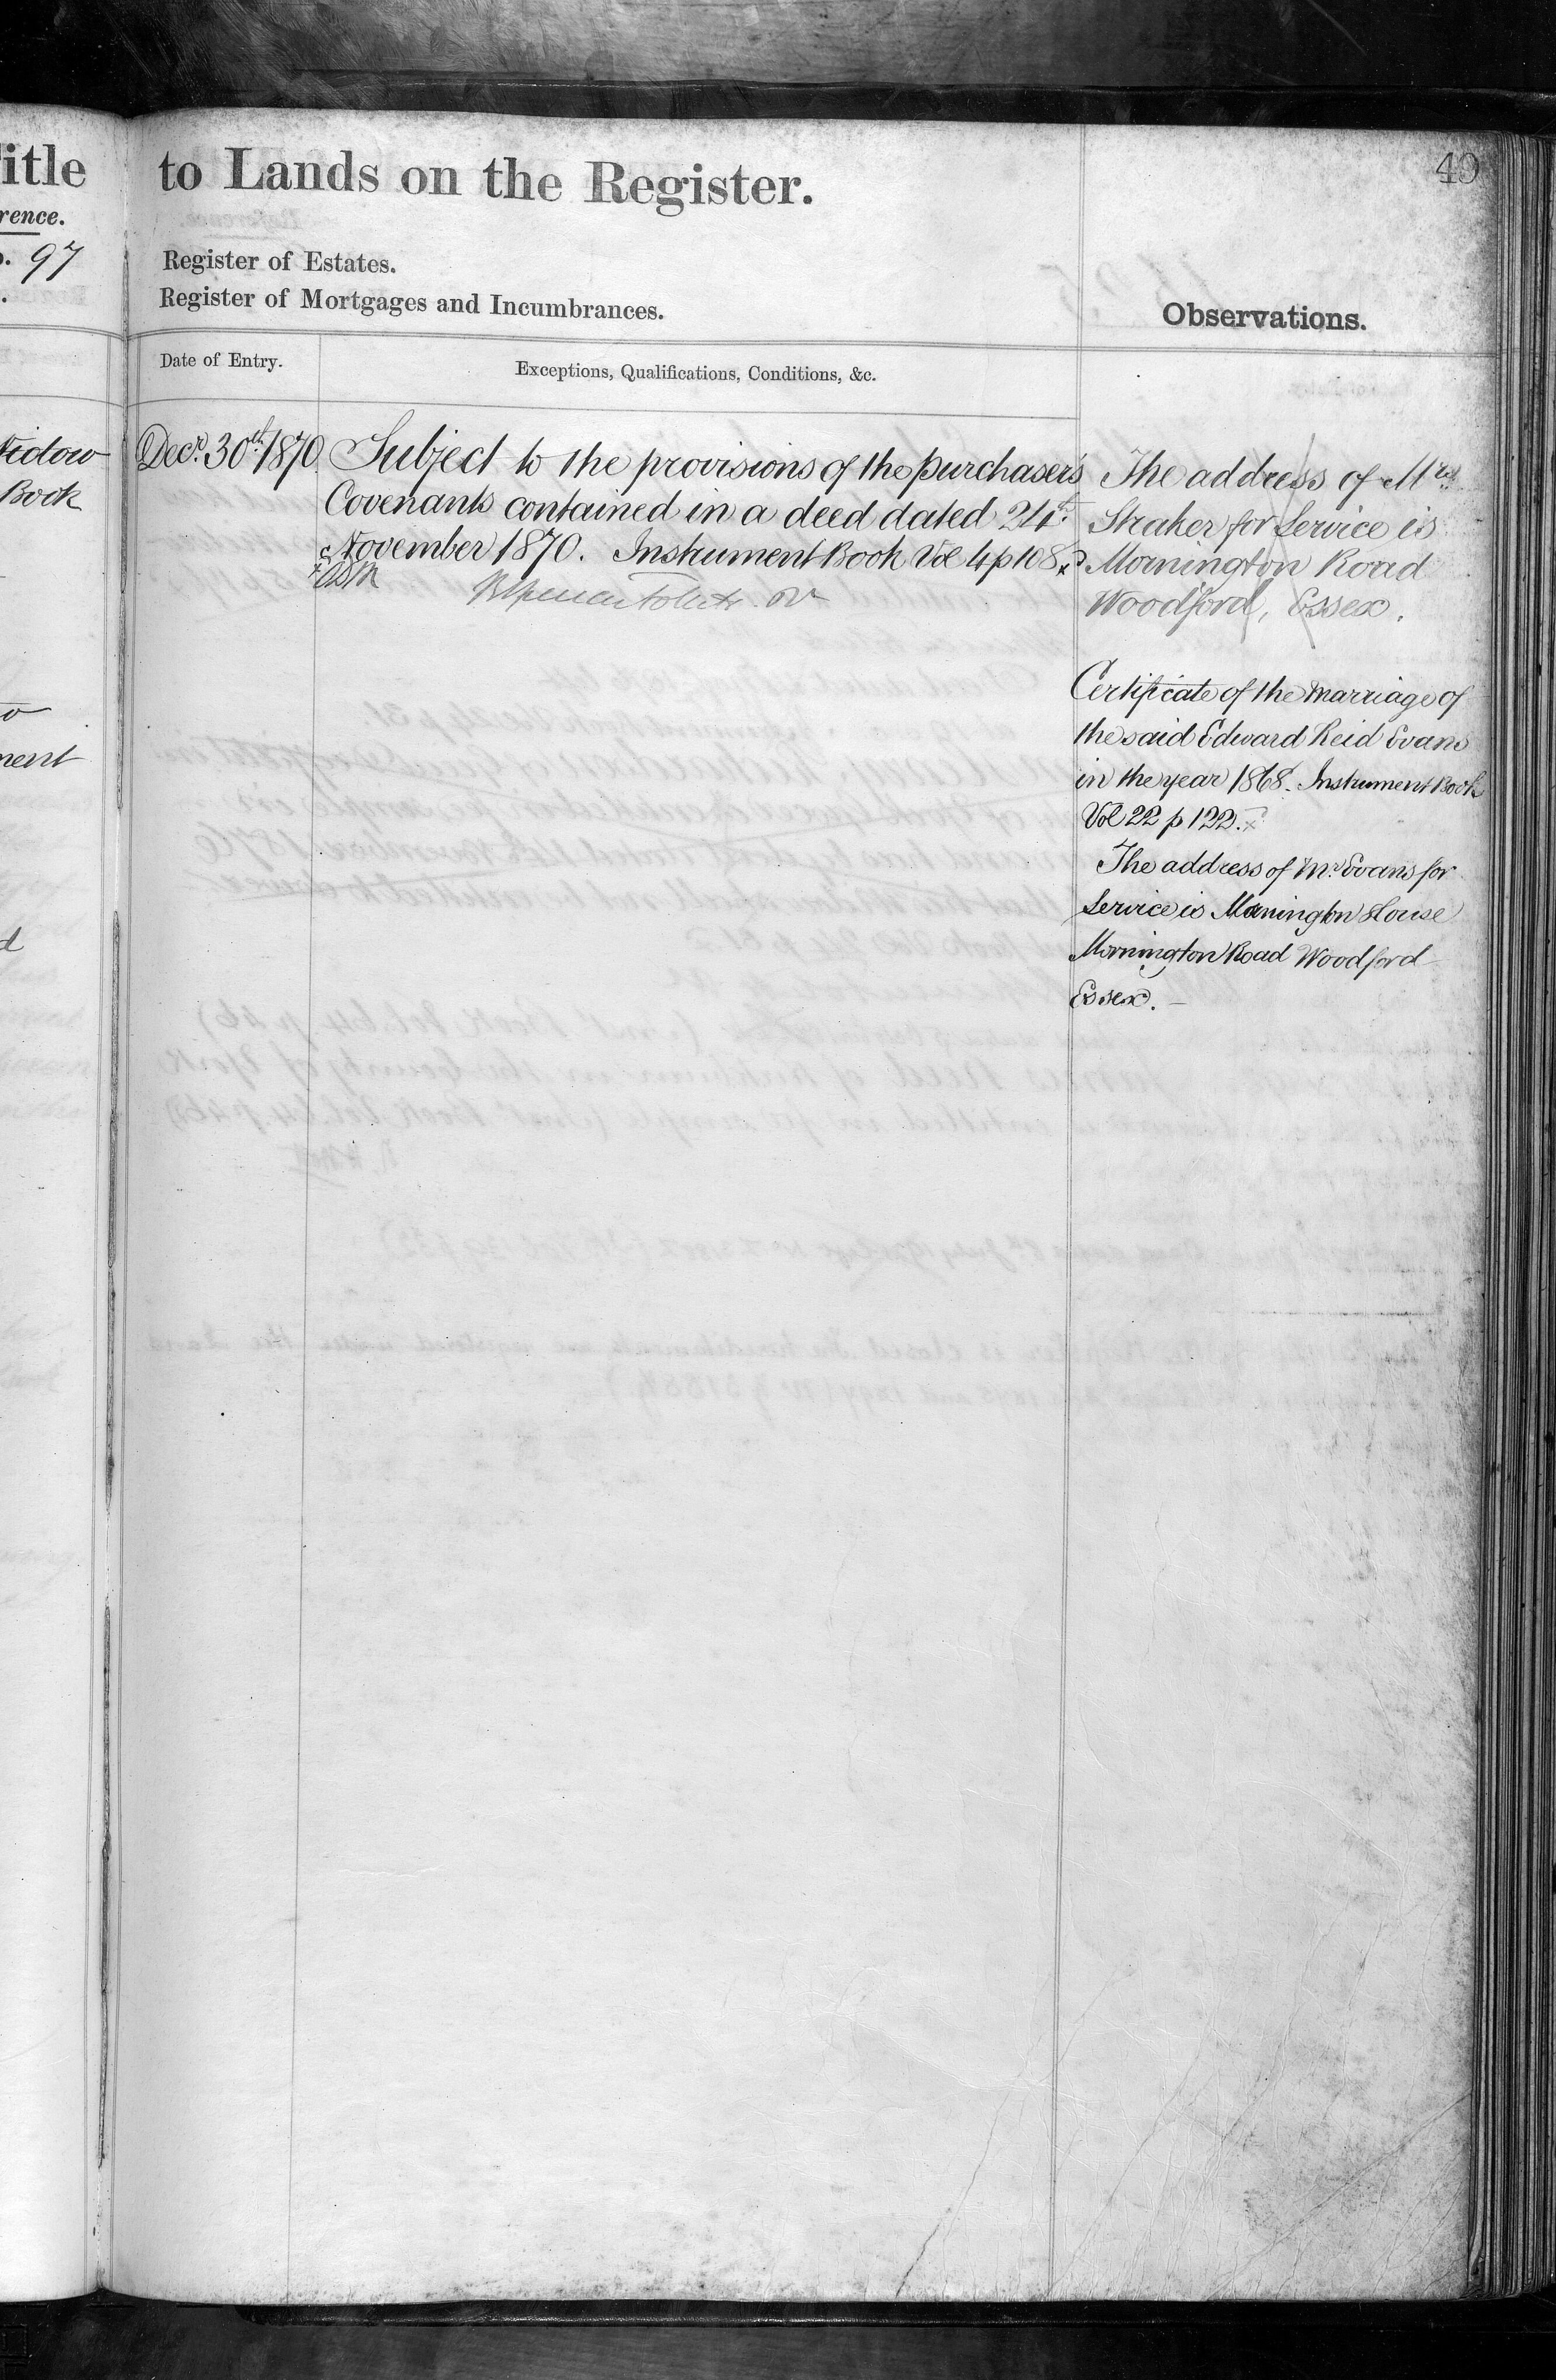 itle
rence.
. 97
Widow
Book
ment
to Lands on the Register.
49
Register of Estates.
Register of Mortgages and Incumbrances.
Observations.
Date of Entry.
Exceptions, Qualifications, Conditions, &c.
Decr. 30th 1870
Subject to the provisions of the purchaser's
Covenants contained in a deed dated 24th
November 1870. Instrument Book Vol 4 p 108
The address of Mrs
Straker for Service is
Mornington Road
Woodford, Essex.
Certificate of the marriage of
the said Edward Reid Evans
in the year 1868. Instrument Book
Vol 22 p 122.
The address of Mr Evans for
Service is Mornington House
Mornington Road Woodford
Essex.